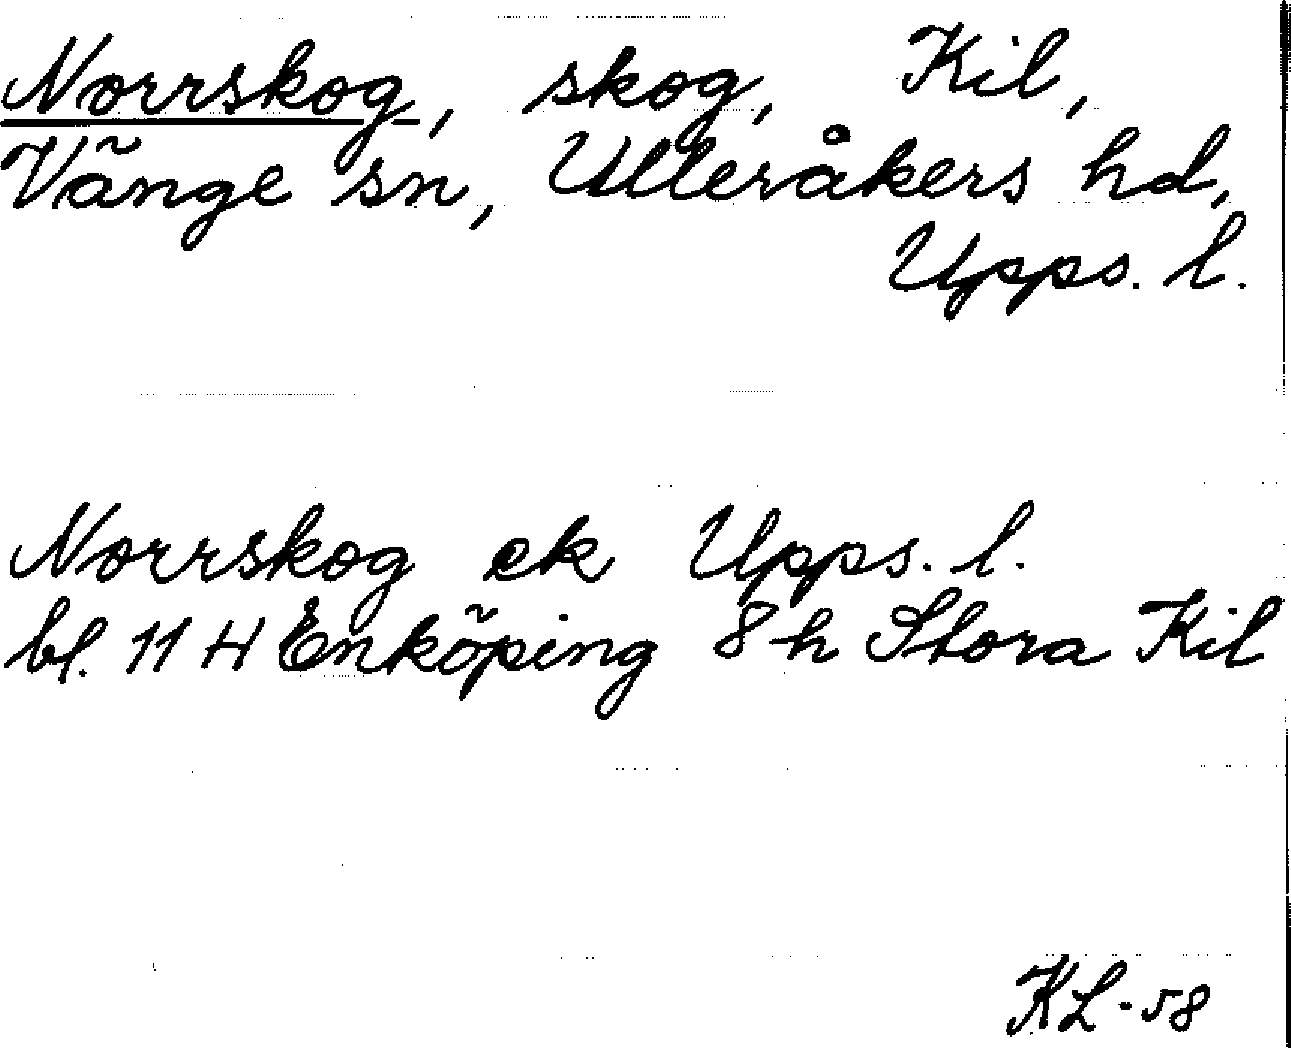 Norrskog, skog, Kil,
Vänge sn, Ulleråkers hd,
Upps. l.
Norrskog ek Upps. l.
bl. 11 H Enköping 8 h Stora Kil
KL-58